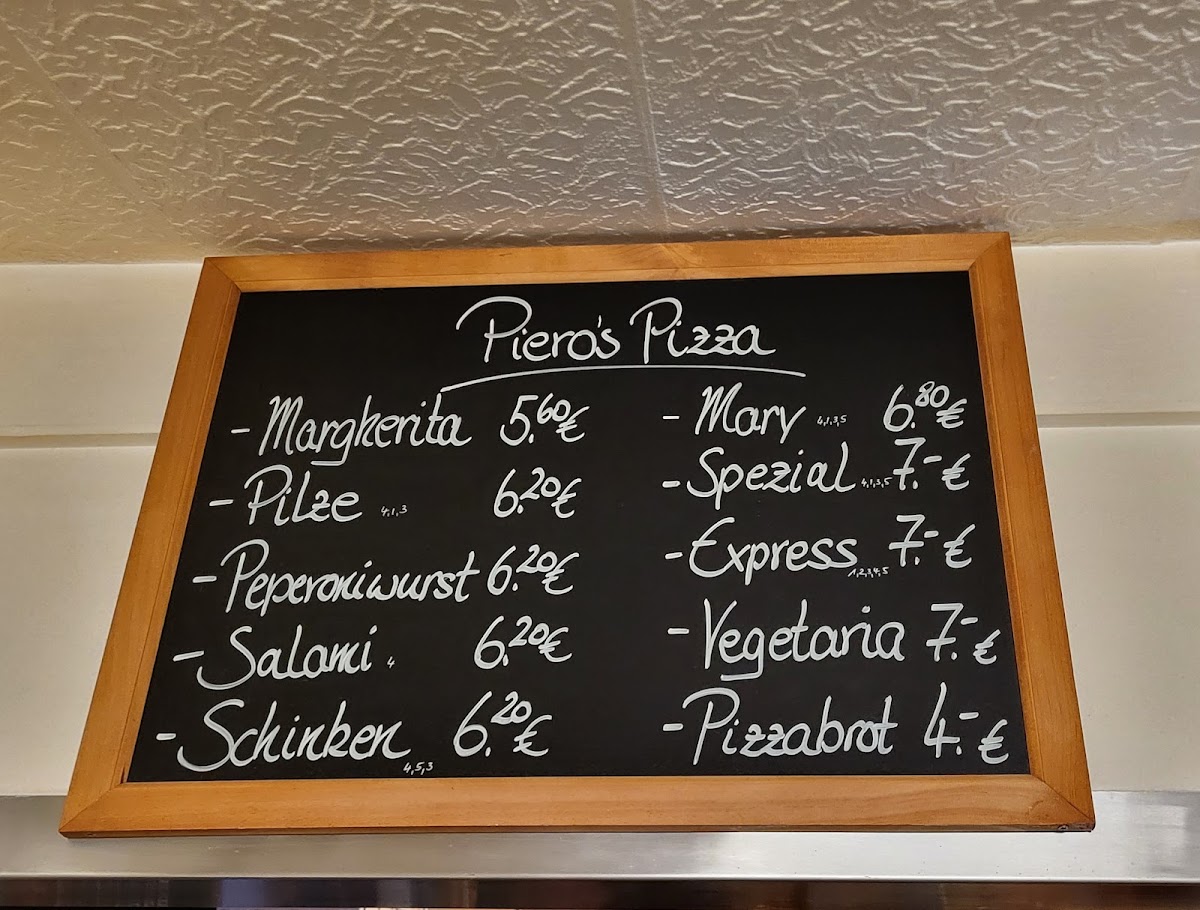 Piero's Pizza
- Margherita 5.60€
- Pilze 4,1,3 6.20€
- Peperoniwurst 6.20€
- Salami 4 6.20€
- Schinken 4,5,3 6.20€
- Mary 4,1,3,5 6.80€
- Spezial 4,1,3,5 7.-€
- Express 1,2,3,4,5 7.-€
- Vegetaria 7.-€
- Pizzabrot 4.-€